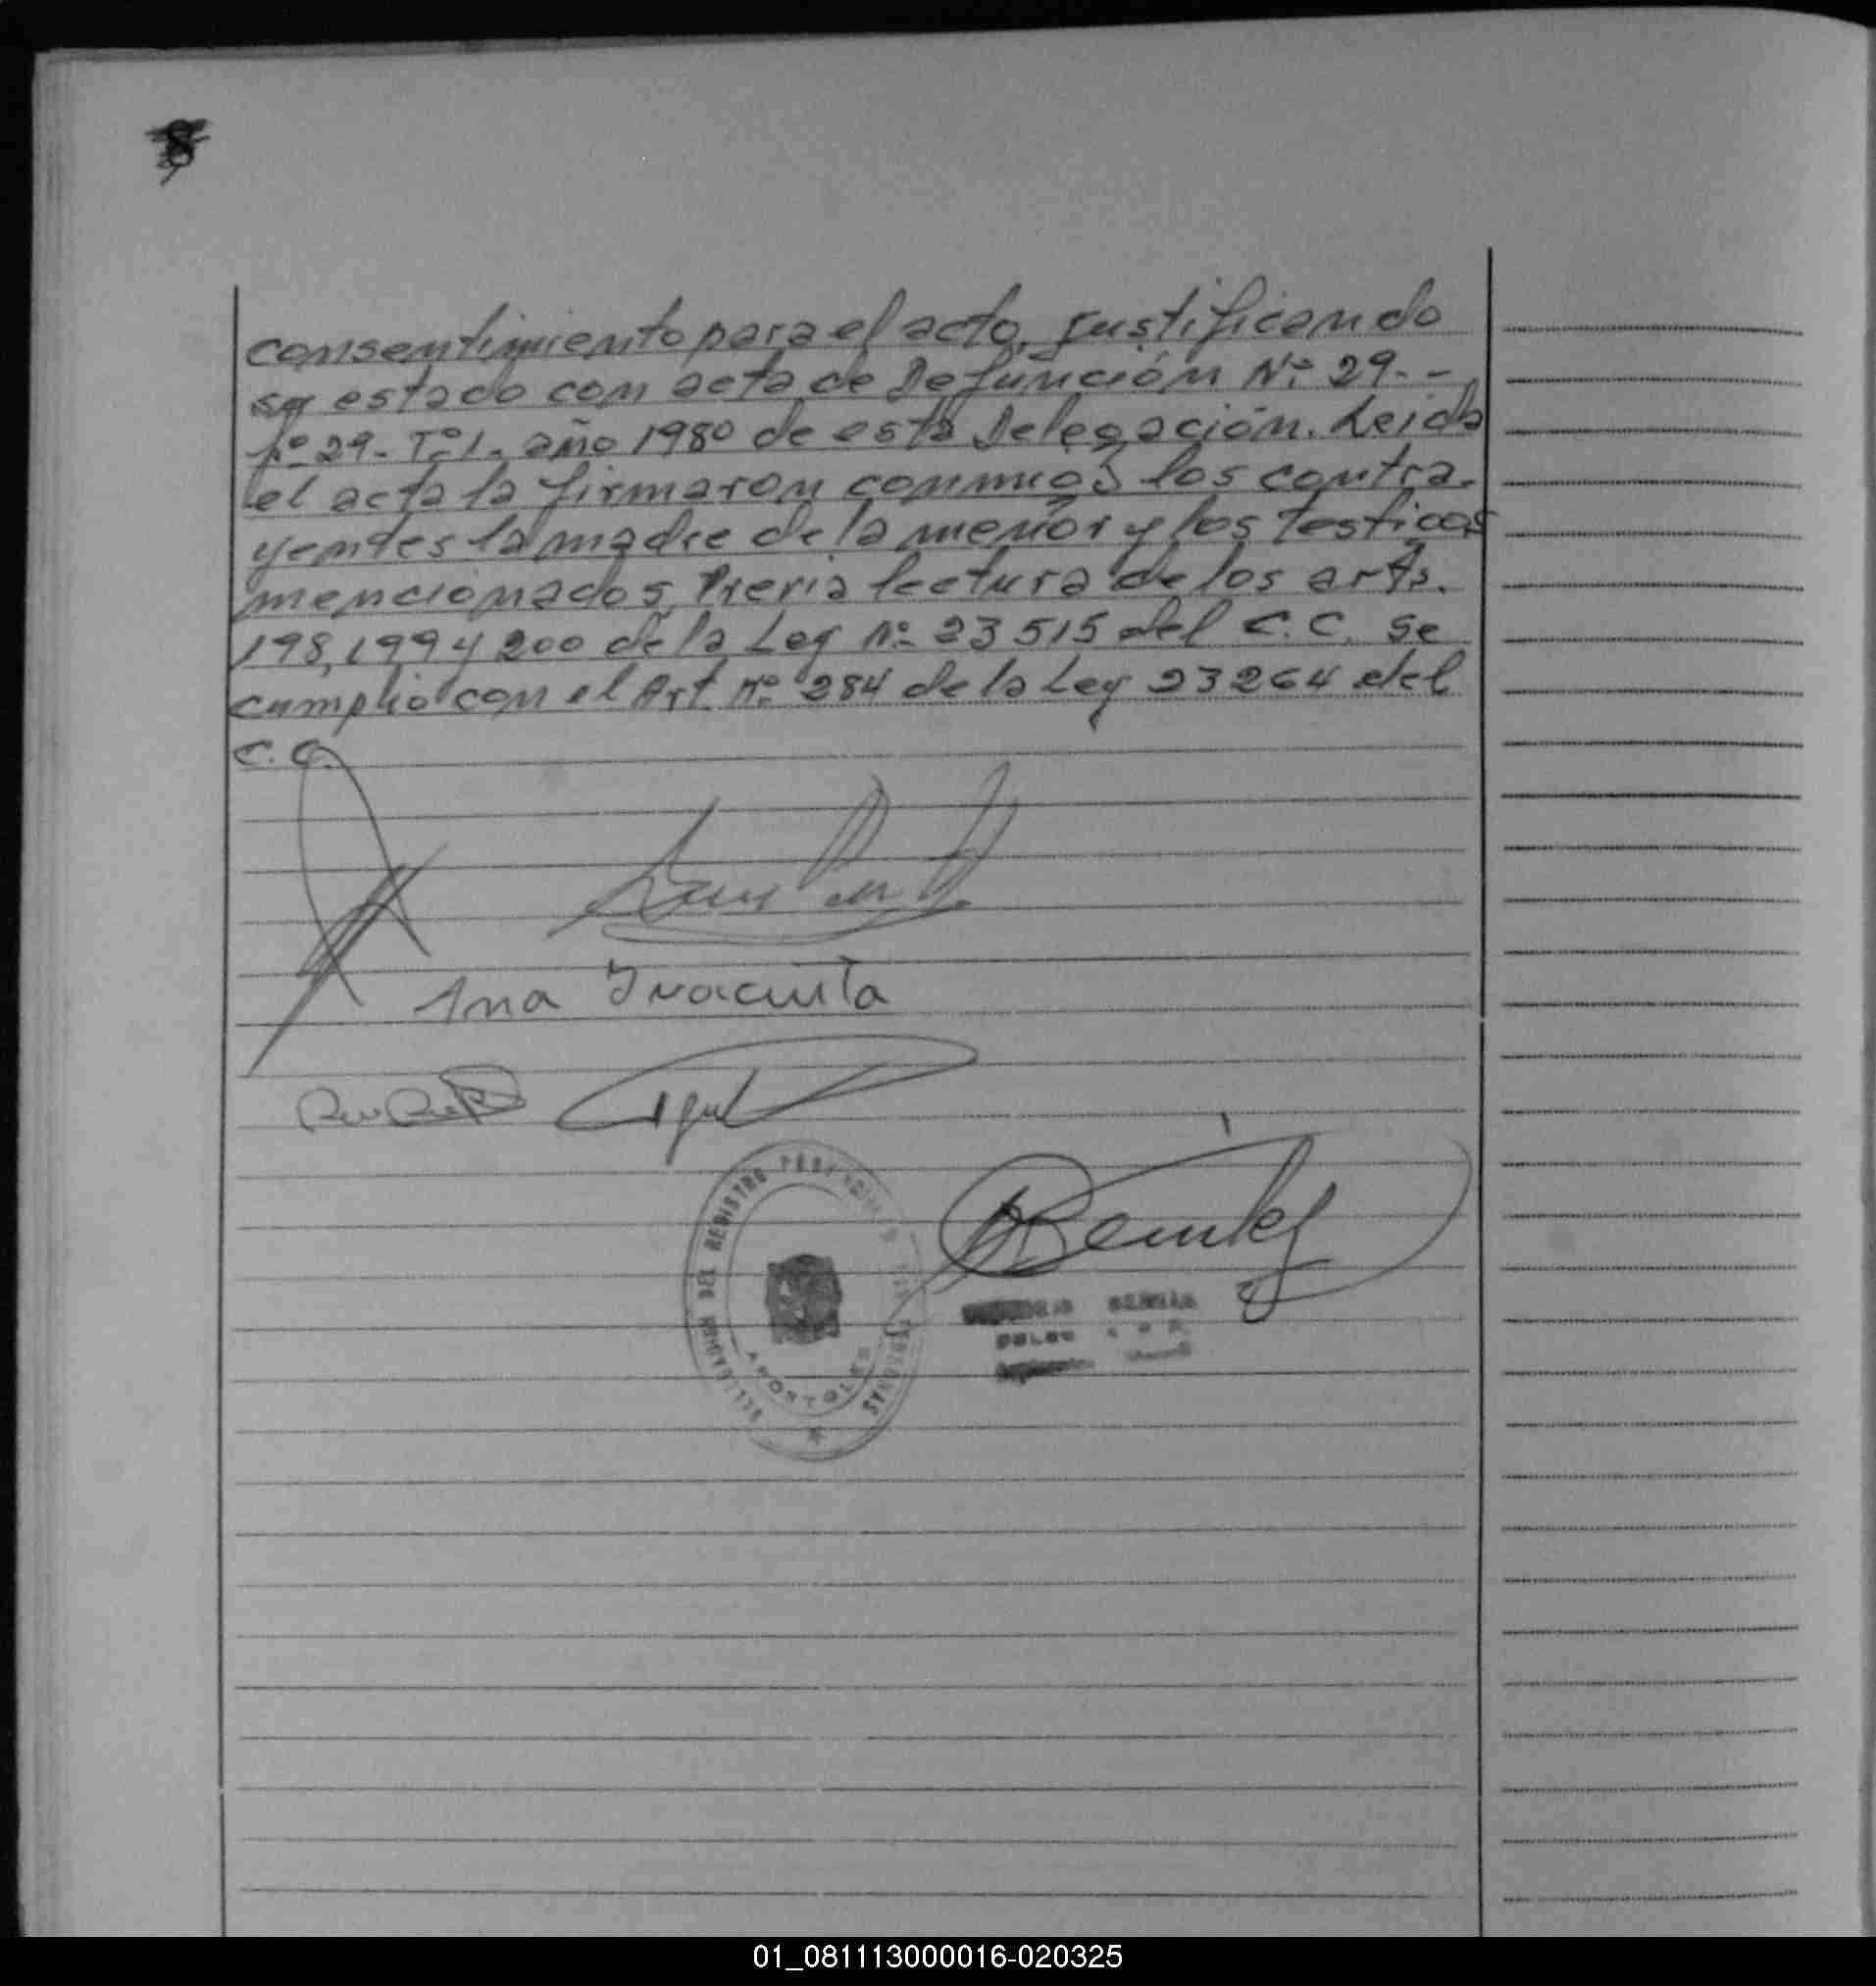 8
consentimiento para el acto, justificando
su estado con acta de Defunción Nº 29.-
Fº 29- Tº 1- año 1980 de esta Delegación. Leida
el acta la firmaron conmigo los contra-
yentes la madre de la menor y los testigos
mencionados, Previa lectura de los arts.
198, 199 y 200 de la Ley Nº 23515 del C.C. Se
cumplio con el Art Nº 284 de la Ley 23264 del
C.C.
Ana
DEL REGISTRO
PERSONAS
APOSTOLES
01_081113000016-020325